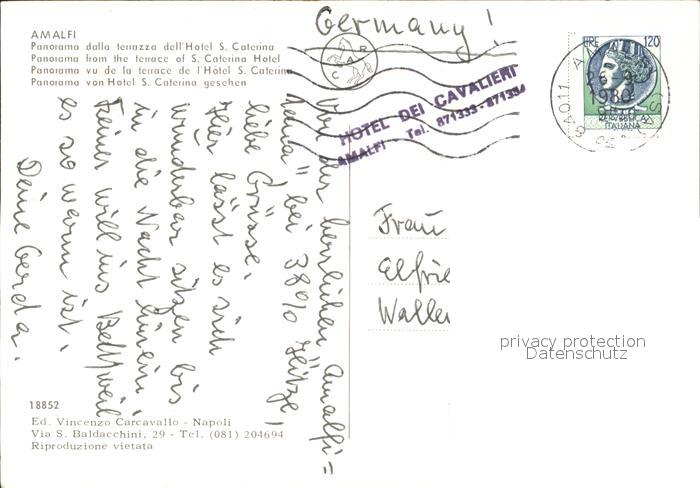 AMALFI
Panorama dalla terrazza dell'Hotel S. Caterina
Panorama from the terrace of S. Caterina Hotel
Panorama vu de la terrace de l'Hôtel S. Caterina
Panorama von Hotel S. Caterina gesehen
Germany!
CAR
HOTEL DEI CAVALIERI
AMALFI Tel. 871333-871334
LIRE 120
REPUBBLICA
ITALIANA
84011
1980
Von der herrlichen Amalfi=
küste" bei 38% Hitze,
liebe Grüsse.
Hier lässt es sich
wunderbar sitzen bis
in die Nacht hinein.
Keiner will ins Bett, weil
es so warm ist.
Deine Gerda.
Frau
Elfrie
Waller
privacy protection
Datenschutz
18852
Ed. Vincenzo Carcavallo - Napoli
Via S. Baldacchini, 29 - Tel. (081) 204694
Riproduzione vietata